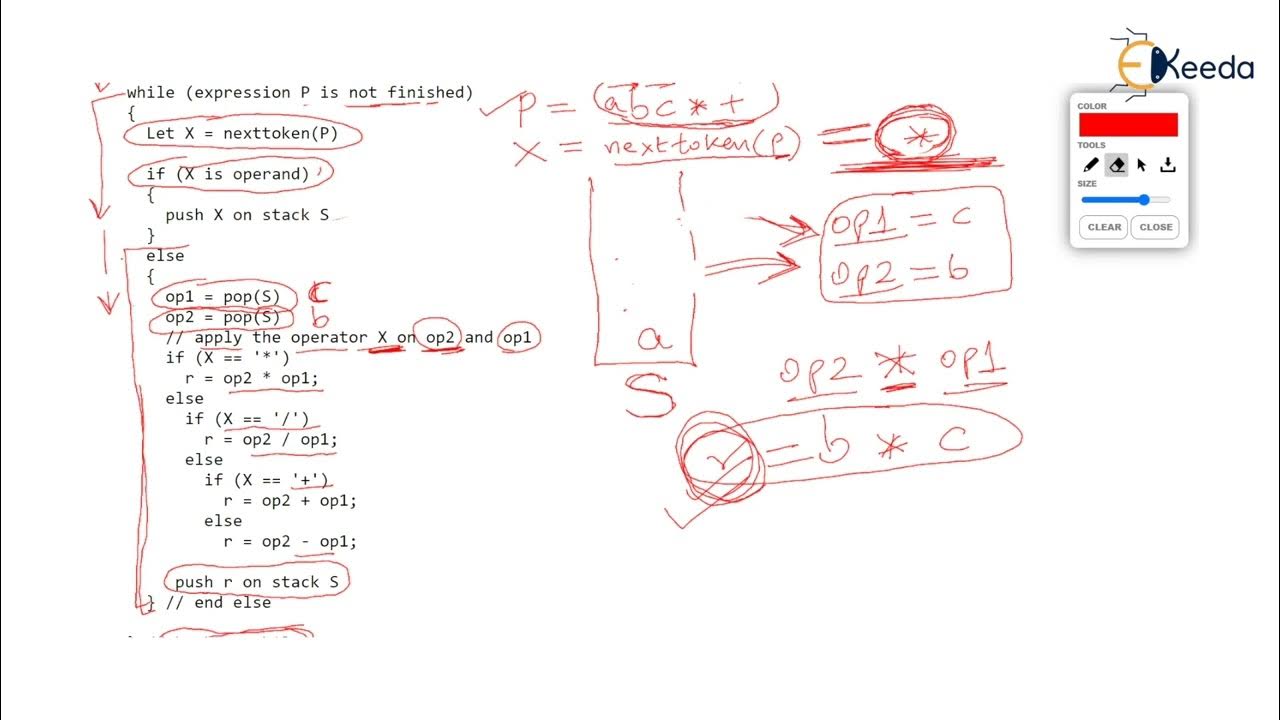 while (expression P is not finished)
{
Let X = nexttoken(P)
if (X is operand)
{
push X on stack S
}
else
{
op1 = pop(S) c
op2 = pop(S) b
// apply the operator X on op2 and op1
if (X == '*')
r = op2 * op1;
else
if (X == '/')
r = op2 / op1;
else
if (X == '+')
r = op2 + op1;
else
r = op2 - op1;
push r on stack S
} // end else
P = (abc*+)
X = nexttoken(P) = *
op1 = c
op2 = b
a
S
op2 * op1
r = b * c
eKeeda
COLOR
TOOLS
SIZE
CLEAR CLOSE